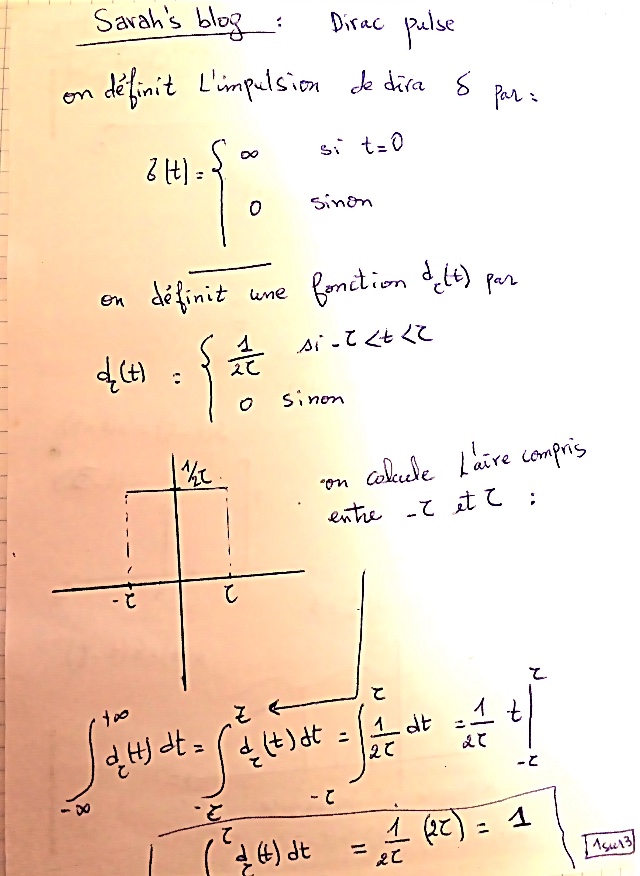 Sarah's blog : Dirac pulse
on définit L'impulsion de dira δ par :
δ(t) = { ∞ si t=0
0 sinon
on définit une fonction d_τ(t) par
d_τ(t) = { 1/2τ si -τ<t<τ
0 sinon
1/2τ
on calcule L'aire compris
entre -τ et τ :
-τ τ
∫_{-∞}^{+∞} d_τ(t) dt = ∫_{-τ}^{τ} d_τ(t) dt = ∫_{-τ}^{τ} 1/2τ dt = 1/2τ t |_{-τ}^{τ}
∫^{τ} d_τ(t) dt = 1/2τ (2τ) = 1
1sur3